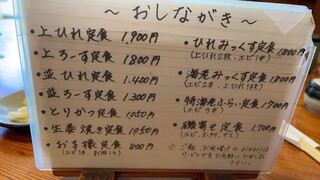 ～おしながき～
・上ひれ定食 1,900円
・上ろーす定食 1,800円
・並ひれ定食 1,400円
・並ろーす定食 1,300円
・とりかつ定食 1,050円
・生姜焼き定食 1,050円
・お子様定食 800円
・ひれみっくす定食 1,800円
・海老みっくす定食 1,800円
・特海老ふらい定食 1,900円
・磯寄せ定食 1,700円